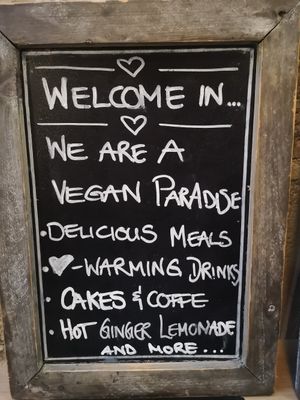 WELCOME IN...
WE ARE A
VEGAN PARADISE
• DELICIOUS MEALS
• ♡-WARMING DRINKS
• CAKES & COFFE
• HOT GINGER LEMONADE
AND MORE...